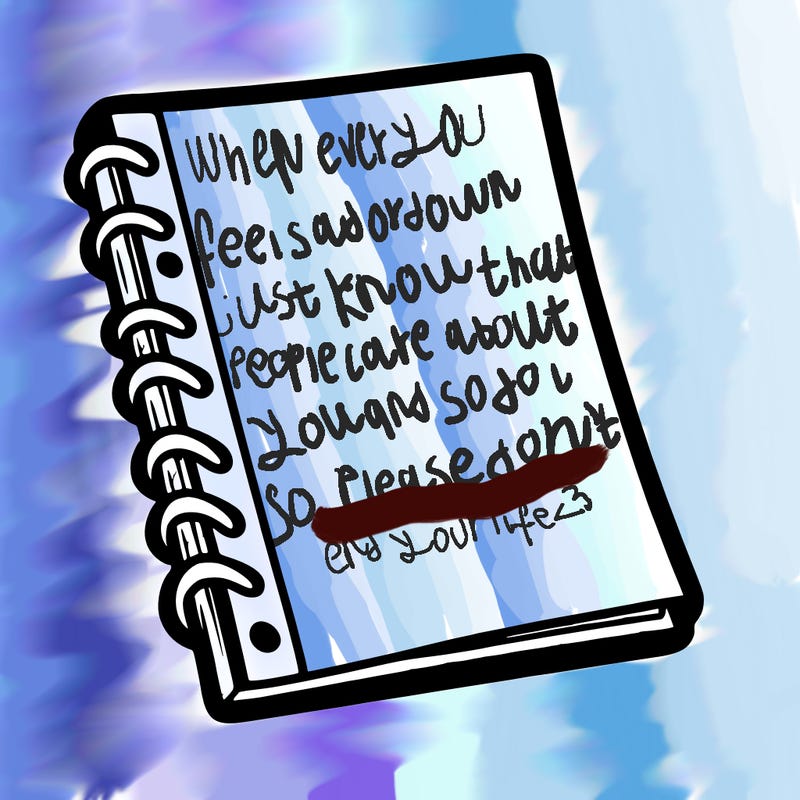 When ever you
feel sad or down
just know that
People care about
you and so do i
so Please don't
end your life <3